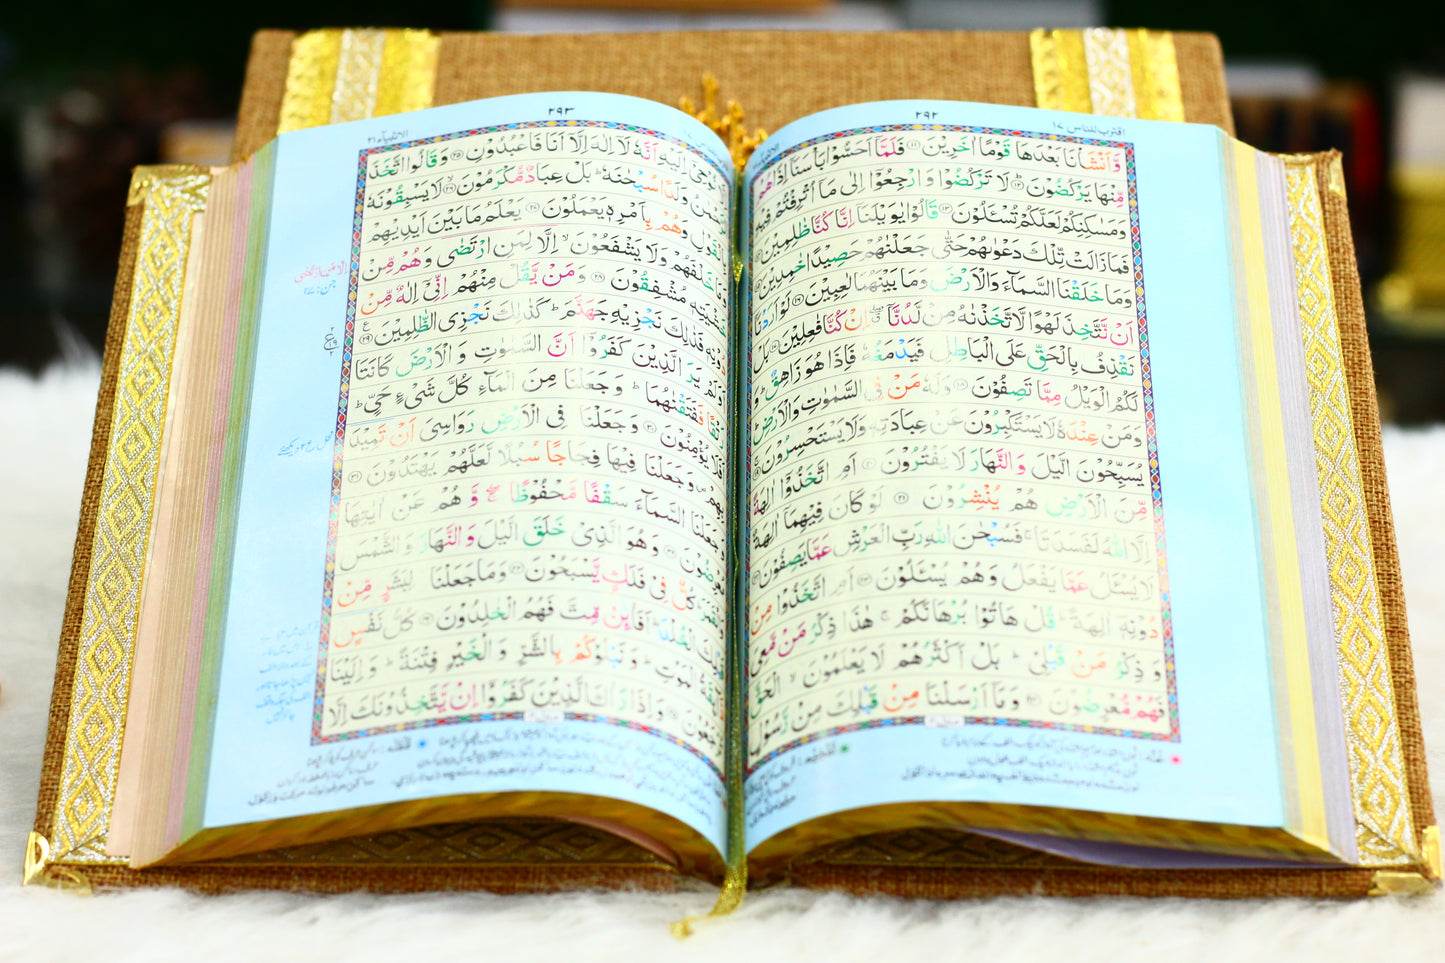 ٢٩٢
اقترب للناس ١٧
وَّاَنْشَاْنَا بَعْدَهَا قَوْمًا اٰخَرِيْنَ ۝۱۱ فَلَمَّاۤ اَحَسُّوْا بَاْسَنَاۤ اِذَا هُمْ
مِّنْهَا يَرْكُضُوْنَ ۝۱۲ لَا تَرْكُضُوْا وَ ارْجِعُوْۤا اِلٰى مَاۤ اُتْرِفْتُمْ فِيْهِ
وَمَسٰكِنِكُمْ لَعَلَّكُمْ تُسْـَٔلُوْنَ ۝۱۳ قَالُوْا يٰوَيْلَنَاۤ اِنَّا كُنَّا ظٰلِمِيْنَ ۝۱۴
فَمَا زَالَتْ تِّلْكَ دَعْوٰىهُمْ حَتّٰى جَعَلْنٰهُمْ حَصِيْدًا خٰمِدِيْنَ ۝۱۵
وَمَا خَلَقْنَا السَّمَآءَ وَالْاَرْضَ وَمَا بَيْنَهُمَا لٰعِبِيْنَ ۝۱۶ لَوْ اَرَدْنَاۤ
اَنْ نَّتَّخِذَ لَهْوًا لَّاتَّخَذْنٰهُ مِنْ لَّدُنَّاۤ ۖۗ اِنْ كُنَّا فٰعِلِيْنَ ۝۱۷ بَلْ
نَقْذِفُ بِالْحَقِّ عَلَى الْبَاطِلِ فَيَدْمَغُهٗ فَاِذَا هُوَ زَاهِقٌ ؕ وَ
لَكُمُ الْوَيْلُ مِمَّا تَصِفُوْنَ ۝۱۸ وَلَهٗ مَنْ فِى السَّمٰوٰتِ وَالْاَرْضِ ؕ
وَمَنْ عِنْدَهٗ لَا يَسْتَكْبِرُوْنَ عَنْ عِبَادَتِهٖ وَلَا يَسْتَحْسِرُوْنَ ۝۱۹
يُسَبِّحُوْنَ الَّيْلَ وَالنَّهَارَ لَا يَفْتُرُوْنَ ۝۲۰ اَمِ اتَّخَذُوْۤا اٰلِهَةً
مِّنَ الْاَرْضِ هُمْ يُنْشِرُوْنَ ۝۲۱ لَوْ كَانَ فِيْهِمَاۤ اٰلِهَةٌ
اِلَّا اللّٰهُ لَفَسَدَتَا ۚ فَسُبْحٰنَ اللّٰهِ رَبِّ الْعَرْشِ عَمَّا يَصِفُوْنَ ۝۲۲
لَا يُسْـَٔلُ عَمَّا يَفْعَلُ وَهُمْ يُسْـَٔلُوْنَ ۝۲۳ اَمِ اتَّخَذُوْا مِنْ
دُوْنِهٖۤ اٰلِهَةً ؕ قُلْ هَاتُوْا بُرْهَانَكُمْ ۚ هٰذَا ذِكْرُ مَنْ مَّعِىَ
وَ ذِكْرُ مَنْ قَبْلِىْ ؕ بَلْ اَكْثَرُهُمْ لَا يَعْلَمُوْنَ ۙ الْحَقَّ
فَهُمْ مُّعْرِضُوْنَ ۝۲۴ وَمَاۤ اَرْسَلْنَا مِنْ قَبْلِكَ مِنْ رَّسُوْلٍ
٢٩٣
الانبیآء ٢١
نُوْحِىْۤ اِلَيْهِ اَنَّهٗ لَاۤ اِلٰهَ اِلَّاۤ اَنَا فَاعْبُدُوْنِ ۝۲۵ وَ قَالُوا اتَّخَذَ
وَلَدًا سُبْحٰنَهٗ ؕ بَلْ عِبَادٌ مُّكْرَمُوْنَ ۝۲۶ لَا يَسْبِقُوْنَهٗ
بِالْقَوْلِ وَهُمْ بِاَمْرِهٖ يَعْمَلُوْنَ ۝۲۷ يَعْلَمُ مَا بَيْنَ اَيْدِيْهِمْ
وَمَا خَلْفَهُمْ وَلَا يَشْفَعُوْنَ ۙ اِلَّا لِمَنِ ارْتَضٰى وَهُمْ مِّنْ
خَشْيَتِهٖ مُشْفِقُوْنَ ۝۲۸ وَمَنْ يَّقُلْ مِنْهُمْ اِنِّىْۤ اِلٰهٌ مِّنْ
دُوْنِهٖ فَذٰلِكَ نَجْزِيْهِ جَهَنَّمَ ؕ كَذٰلِكَ نَجْزِى الظّٰلِمِيْنَ ۝۲۹
اَوَلَمْ يَرَ الَّذِيْنَ كَفَرُوْۤا اَنَّ السَّمٰوٰتِ وَ الْاَرْضَ كَانَتَا
رَتْقًا فَفَتَقْنٰهُمَا ؕ وَ جَعَلْنَا مِنَ الْمَآءِ كُلَّ شَىْءٍ حَىٍّ ؕ
اَفَلَا يُؤْمِنُوْنَ ۝۳۰ وَ جَعَلْنَا فِى الْاَرْضِ رَوَاسِىَ اَنْ تَمِيْدَ
بِهِمْ ۪ وَ جَعَلْنَا فِيْهَا فِجَاجًا سُبُلًا لَّعَلَّهُمْ يَهْتَدُوْنَ ۝۳۱
وَ جَعَلْنَا السَّمَآءَ سَقْفًا مَّحْفُوْظًا ۖۚ وَ هُمْ عَنْ اٰيٰتِهَا
مُعْرِضُوْنَ ۝۳۲ وَ هُوَ الَّذِىْ خَلَقَ الَّيْلَ وَ النَّهَارَ وَ الشَّمْسَ
وَ الْقَمَرَ ؕ كُلٌّ فِىْ فَلَكٍ يَّسْبَحُوْنَ ۝۳۳ وَ مَا جَعَلْنَا لِبَشَرٍ مِّنْ
قَبْلِكَ الْخُلْدَ ؕ اَفَا۠ئِنْ مِّتَّ فَهُمُ الْخٰلِدُوْنَ ۝۳۴ كُلُّ نَفْسٍ
ذَآئِقَةُ الْمَوْتِ ؕ وَ نَبْلُوْكُمْ بِالشَّرِّ وَ الْخَيْرِ فِتْنَةً ؕ وَ اِلَيْنَا
تُرْجَعُوْنَ ۝۳۵ وَ اِذَا رَاٰكَ الَّذِيْنَ كَفَرُوْۤا اِنْ يَّتَّخِذُوْنَكَ اِلَّا